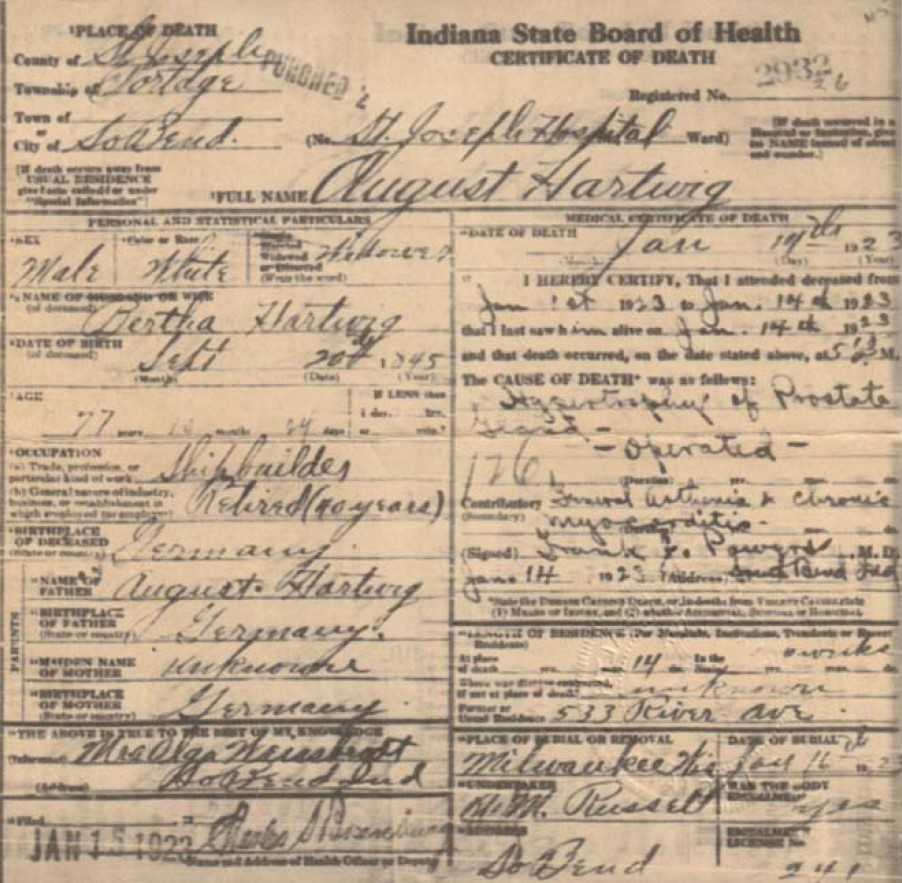 Indiana State Board of Health
CERTIFICATE OF DEATH
PLACE OF DEATH
County of St. Joseph
Township of Portage
Town of
or
City of So Bend.
Registered No. 2932
26
(No. St. Joseph Hospital Ward)
[If death occurred in a Hospital or Institution, give its NAME instead of street and number.]
[If death occurs away from USUAL RESIDENCE give facts called for under "Special Information"]
FULL NAME August Hartwig
PERSONAL AND STATISTICAL PARTICULARS
SEX
Male
Color or Race
White
Single
Married
Widowed
or Divorced
(Write the word)
Widower
NAME OF HUSBAND OR WIFE
(of deceased)
Bertha Hartwig
DATE OF BIRTH
(of deceased)
Sept 20th, 1845
(Month) (Date) (Year)
AGE
77 years months 24 days
If LESS than
1 day, hrs.
or min.?
OCCUPATION
(a) Trade, profession, or
particular kind of work
Shipbuilder
(b) General nature of industry,
business, or establishment in
which employed (or employer)
Retired
BIRTHPLACE
OF DECEASED
(State or country)
Germany.
PARENTS
NAME OF
FATHER
August Hartwig
BIRTHPLACE
OF FATHER
(State or country)
Germany.
MAIDEN NAME
OF MOTHER
Unknown
BIRTHPLACE
OF MOTHER
(State or country)
Germany
THE ABOVE IS TRUE TO THE BEST OF MY KNOWLEDGE
(Informant) Mrs Olga
(Address) So Bend Ind
Filed
JAN 15 1923 Charles
Name and Address of Health Officer or Deputy
MEDICAL CERTIFICATE OF DEATH
DATE OF DEATH
Jan 14th 1923
(Month) (Day) (Year)
I HEREBY CERTIFY, That I attended deceased from
Jan 1st 1923 to Jan. 14th 1923
that I last saw him alive on Jan. 14th 1923
and that death occurred, on the date stated above, at M.
The CAUSE OF DEATH* was as follows:
Hypertrophy of Prostate
Gland
- Operated -
126
(Duration) yrs. mos. ds.
Contributory
(Secondary)
General Asthenia & Chronic
Myocarditis
(Signed) Frank M.D.
Jan 14 1923 (Address) South Bend Ind
*State the Disease Causing Death, or in deaths from Violent Causes state
(1) Means of Injury, and (2) whether Accidental, Suicidal or Homicidal.
LENGTH OF RESIDENCE (For Hospitals, Institutions, Transients or Recent Residents)
At place
of death yrs. mos. 14 ds. In the State weeks
Where was disease contracted,
if not at place of death? unknown
Former or
Usual Residence 533 River Ave
PLACE OF BURIAL OR REMOVAL
Milwaukee Wis
DATE OF BURIAL
Jan 16 1923
UNDERTAKER
McM. Russell
WAS THE BODY
EMBALMED?
yes
ADDRESS
So Bend
EMBALMER'S
LICENSE NO.
241